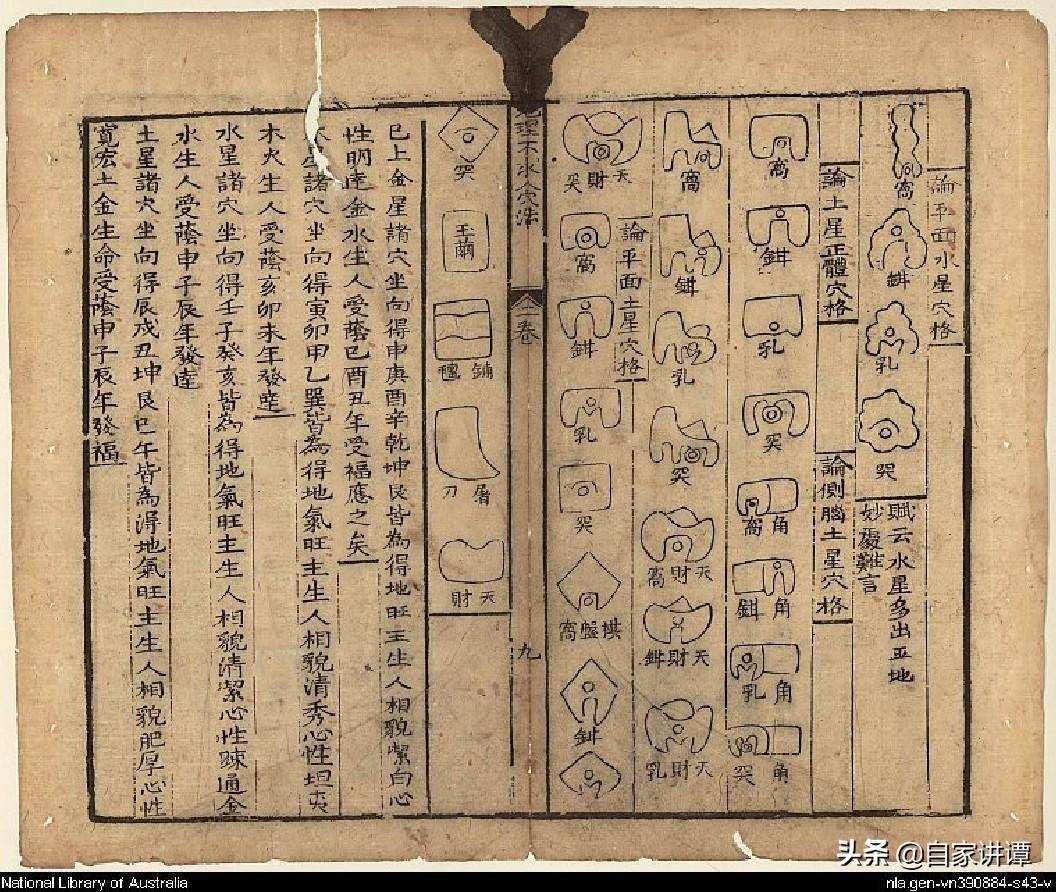 論平面水星穴格
窩
鉗
乳
突
賦云水星多出平地
妙處難言
論土星正體穴格
論側腦土星穴格
窩
鉗
乳
突
角窩
角鉗
角乳
角突
窩
鉗
乳
突
天財窩
天財鉗
天財乳
天財突
論平面土星穴格
窩
鉗
乳
突
棋盤窩
鉗
地理不求人穴法
卷
九
突
玉繭
鋪氊
屠刀
天財
巳上金星諸穴坐向得申庚酉辛乾坤艮皆為得地旺主生人相貌潔白心
性明達金水生人受蔭巳酉丑年受福應之矣
星諸穴坐向得寅卯甲乙巽皆為得地氣旺主生人相貌清秀心性坦夷
木火生人受蔭亥卯未年發達
水星諸穴坐向得壬子癸亥皆為得地氣旺主生人相貌清潔心性疎通金
水生人受蔭申子辰年發達
土星諸穴坐向得辰戌丑坤艮巳午皆為得地氣旺主生人相貌肥厚心性
寬宏土金生命受蔭申子辰年發福
头条 @自家讲谭
National Library of Australia
nla.gen-vn390884-s43-v